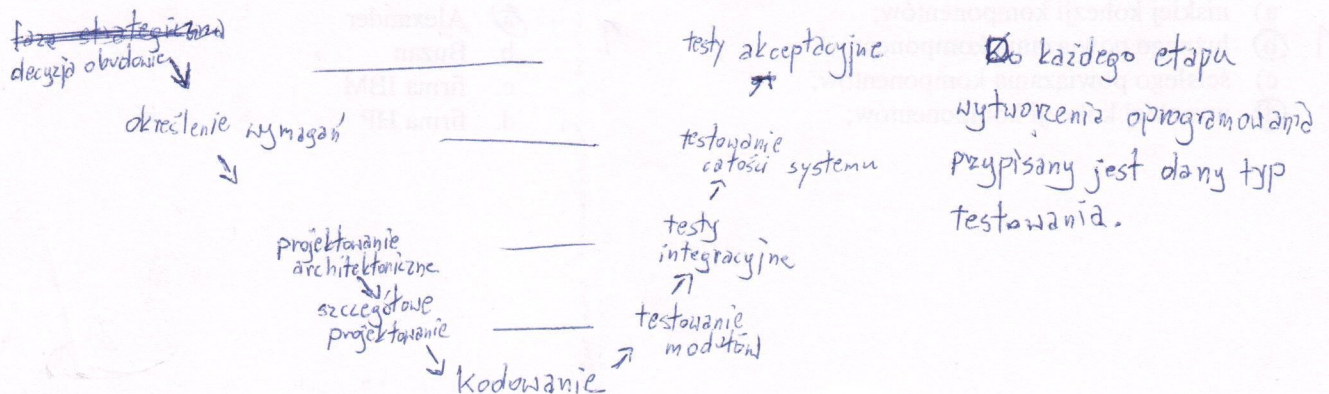 faza strategiczna
decyzja o budowie
określenie wymagań
projektowanie
architektoniczne
szczegółowe
projektowanie
kodowanie
testowanie
modułów
testy
integracyjne
testowanie
całości systemu
testy akceptacyjne
Do każdego etapu
wytworzenia oprogramowania
przypisany jest dany typ
testowania.